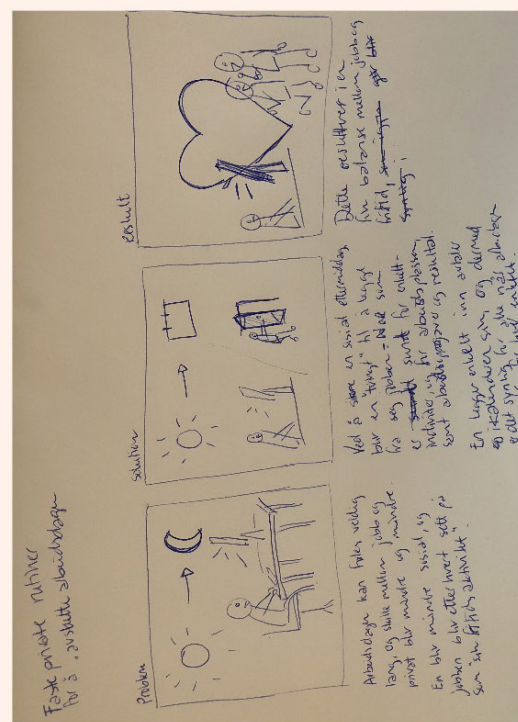 Faste private rutiner
for å "avslutte arbeidsdagen
Problem
Arbeidsdagen kan føles veldig
lang, og skille mellom jobb og
privat blir mindre og mindre.
En blir mindre sosial, og
jobben blir etter hvert sett på
som "sin fritids aktivitet".
Solution
Ved å en sosial ettermiddag,
blir en "tvingt" til å legge
fra seg jobben = Noe som
er sunnt for enkelt-
individer, og for arbeidsplassen,
samt arbeidsoppgaver og resultat.
En legger enkelt inn avtaler
i kalenderen sin, og dermed
er det synlig for alle når arbeidsdagen
for hver enkelt.
resultat
Dette resulterer i en
fin balanse mellom jobb og
fritid,